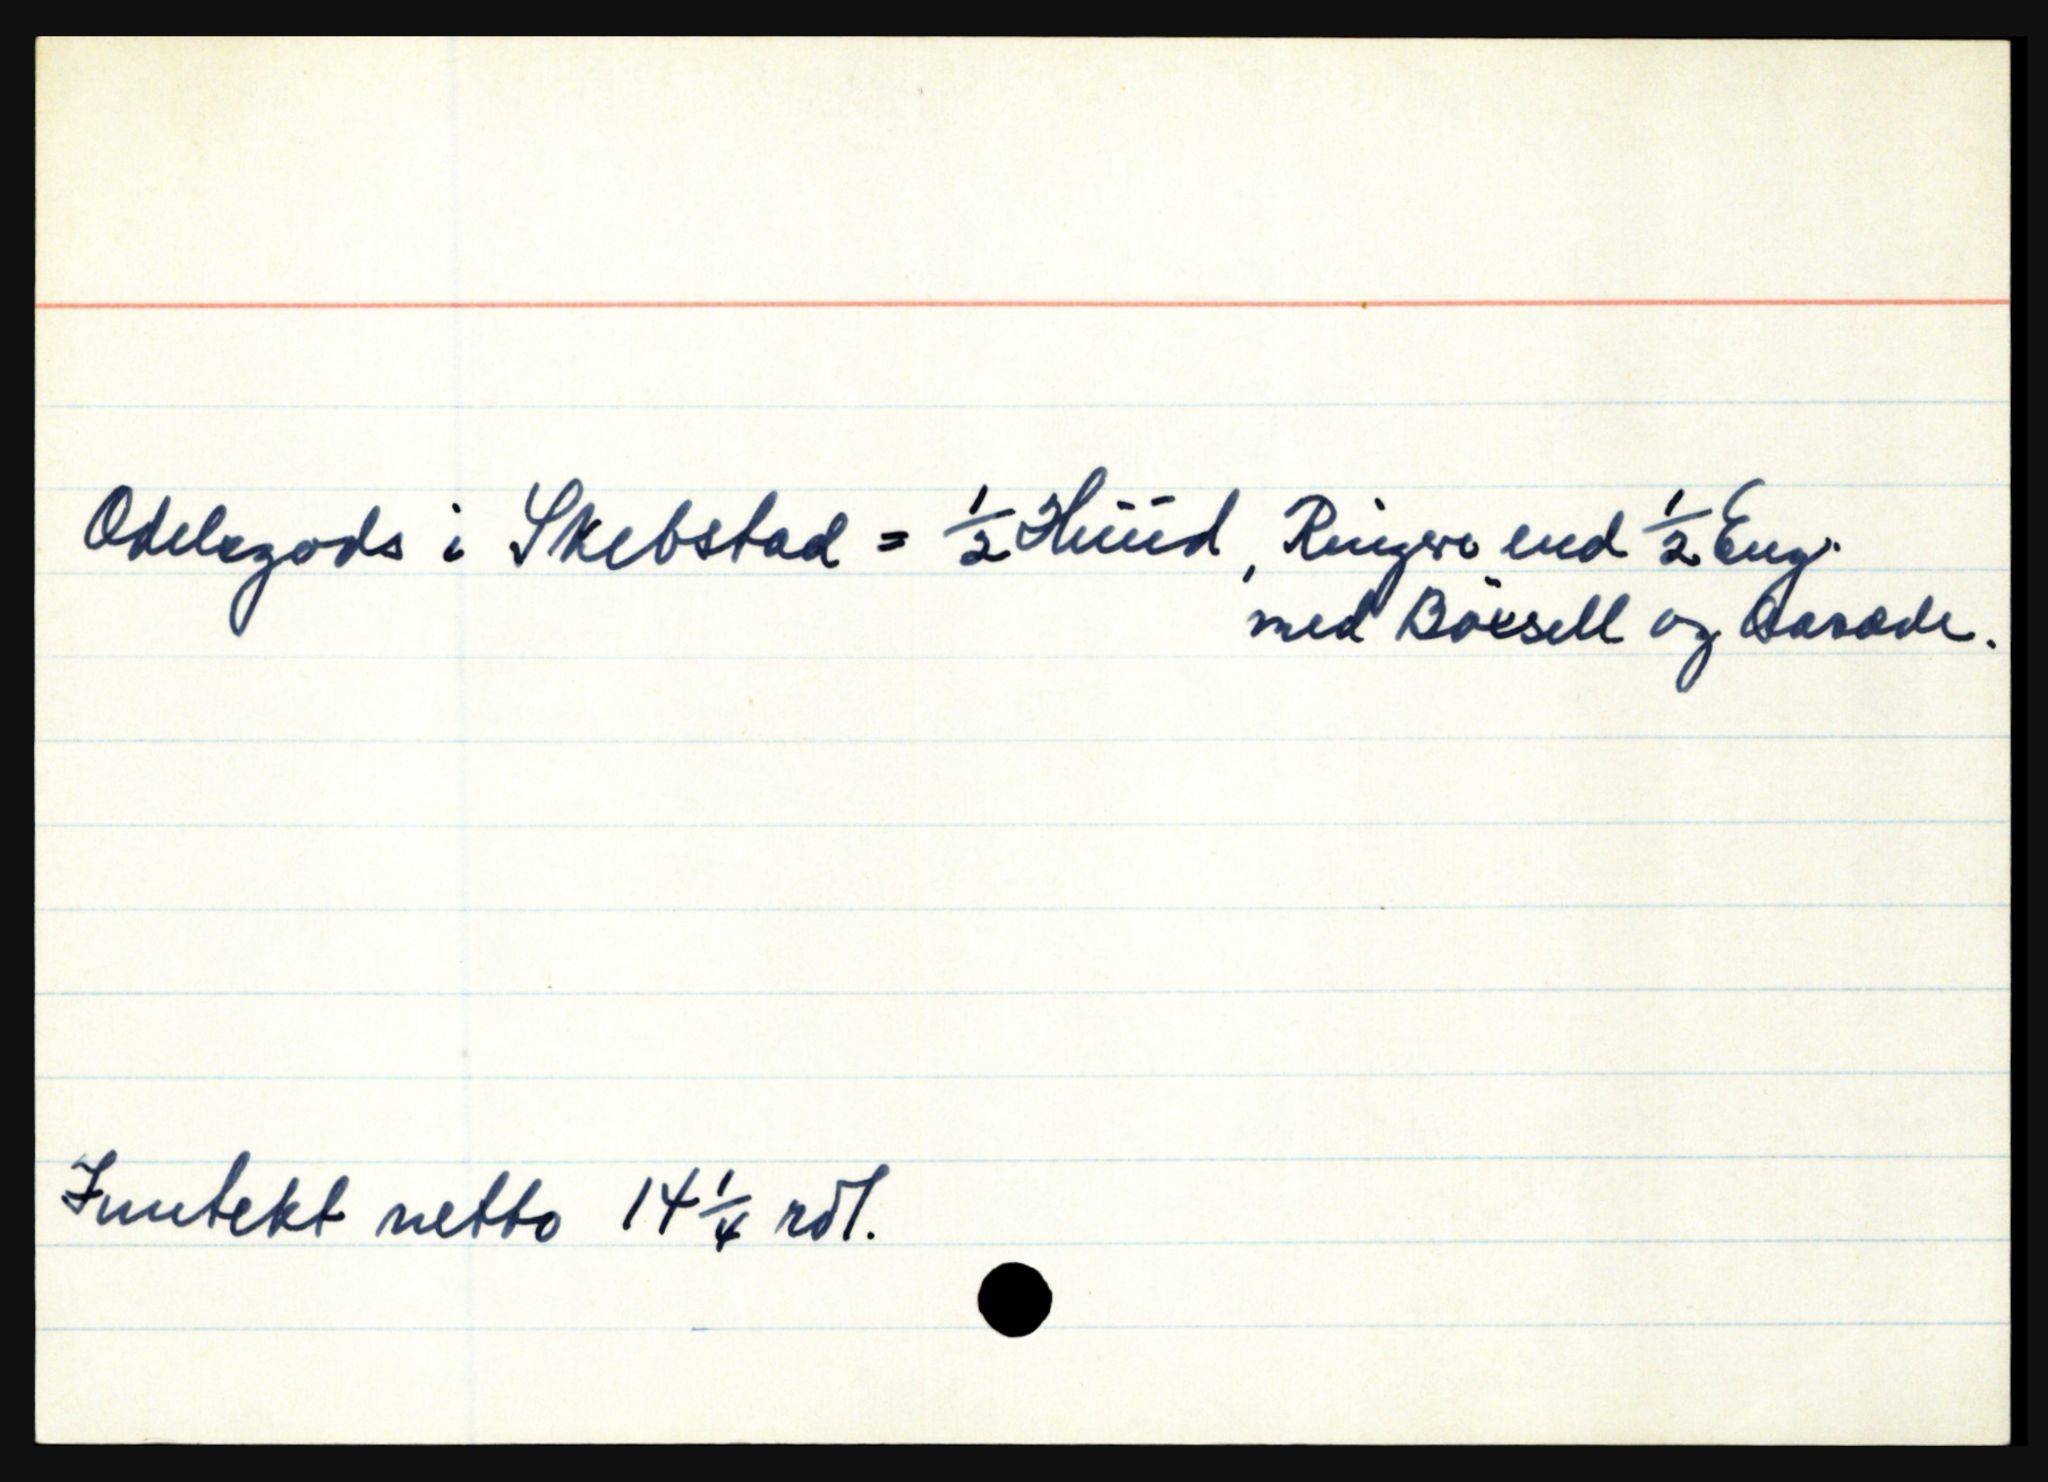 Odelsgods i Skebstad = 1/2 Hüüd, Ringere end 1/2 Eng.
med Böxsell og Aaræde.
Inntekt netto 14 1/4 rdl.